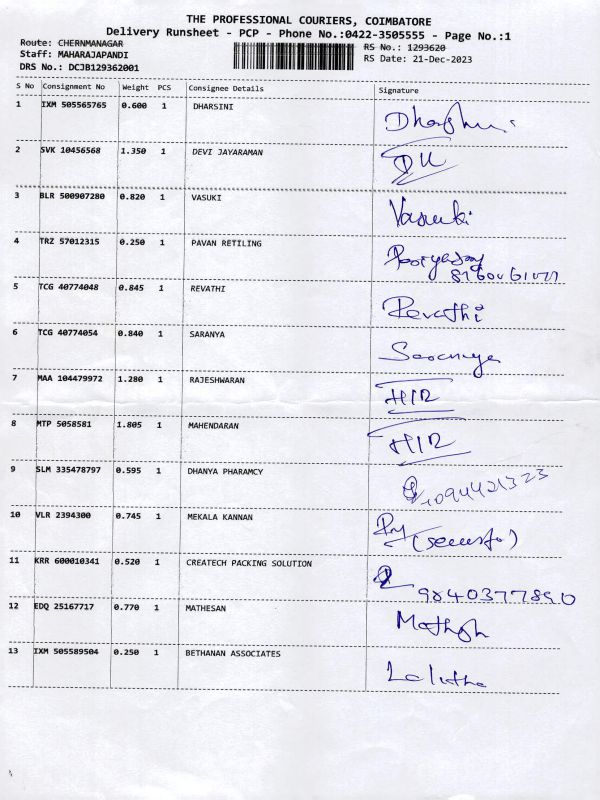 THE PROFESSIONAL COURIERS, COIMBATORE
Delivery Runsheet - PCP - Phone No.:0422-3505555 - Page No.:1
Route: CHERNMANAGAR RS No.: 1293620
Staff: MAHARAJAPANDI RS Date: 21-Dec-2023
DRS No.: DCJB129362001
S No Consignment No Weight PCS Consignee Details Signature
1 IXM 505565765 0.600 1 DHARSINI
2 SVK 10456568 1.350 1 DEVI JAYARAMAN
3 BLR 500907280 0.820 1 VASUKI Vasuki
4 TRZ 57012315 0.250 1 PAVAN RETILING
5 TCG 40774048 0.845 1 REVATHI Revathi
6 TCG 40774054 0.840 1 SARANYA
7 MAA 104479972 1.280 1 RAJESHWARAN H/R
8 MTP 5058581 1.805 1 MAHENDARAN H/R
9 SLM 335478797 0.595 1 DHANYA PHARAMCY
10 VLR 2394300 0.745 1 MEKALA KANNAN
11 KRR 600010341 0.520 1 CREATECH PACKING SOLUTION
9840377890
12 EDQ 25167717 0.770 1 MATHESAN
13 IXM 505589504 0.250 1 BETHANAN ASSOCIATES Lalitha